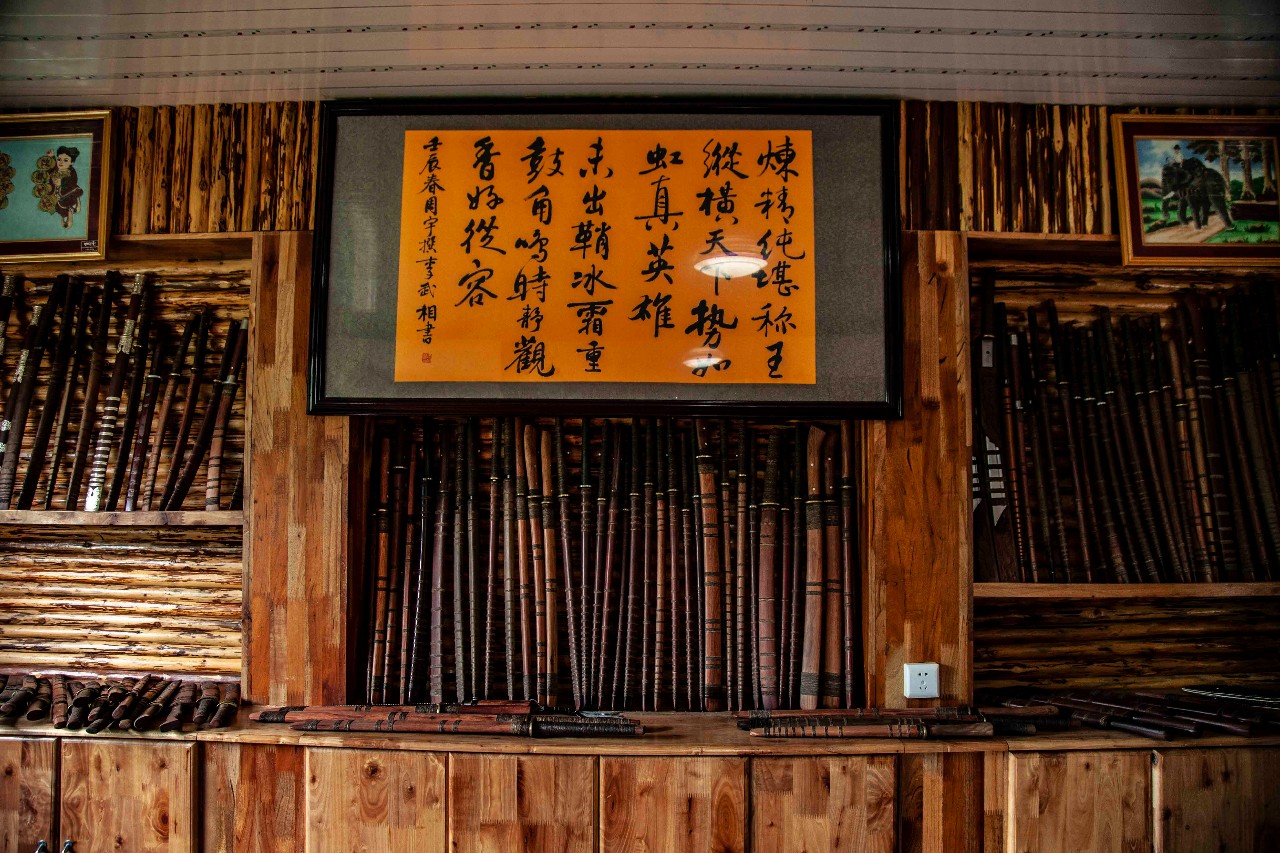 煉精純堪称王
縱橫天下势如
虹真英雄
未出鞘冰霜重
鼓角鳴時靜觀
香好從容
壬辰春周宇撰李武相書